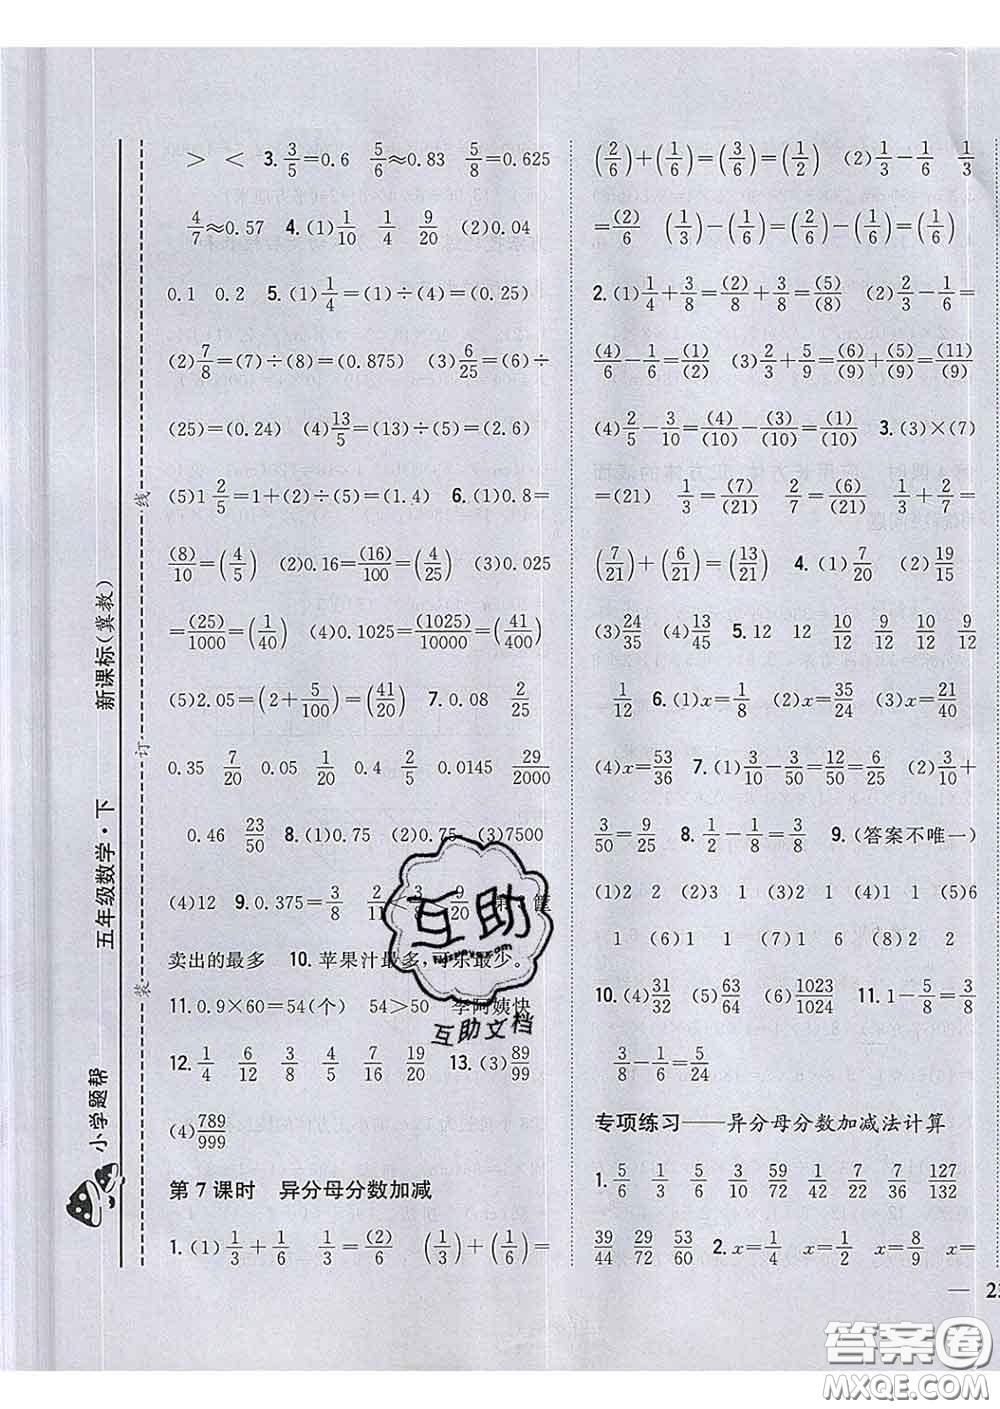 > < 3. 3/5=0.6 5/6≈0.83 5/8=0.625
4/7≈0.57 4.(1)1/10 1/4 9/20 (2)0.04
0.1 0.2 5.(1)1/4=(1)÷(4)=(0.25)
(2)7/8=(7)÷(8)=(0.875) (3)6/25=(6)÷
(25)=(0.24) (4)13/5=(13)÷(5)=(2.6)
(5)1 2/5=1+(2)÷(5)=(1.4) 6.(1)0.8=
(8)/10=(4/5) (2)0.16=(16)/100=(4/25) (3)0.025
=(25)/1000=(1/40) (4)0.1025=(1025)/10000=(41/400)
(5)2.05=(2+5/100)=(41/20) 7. 0.08 2/25
0.35 7/20 0.05 1/20 0.4 2/5 0.0145 29/2000
0.46 23/50 8.(1)0.75 (2)0.75 (3)7500
(4)12 9. 0.375=3/8 2/11<3/8<9/20 筐
卖出的最多 10. 苹果汁最多,可乐最少。
11. 0.9×60=54(个) 54>50 李阿姨快
12. 1/4 6/12 3/8 4/5 7/16 19/20 13.(3)89/99
(4)789/999
第 7 课时 异分母分数加减
1.(1)1/3+1/6 1/3=(2)/6 (1/3)+(1/6)=
(2/6)+(1/6)=(3/6)=(1/2) (2)1/3-1/6 1/3
=(2)/6 (1/3)-(1/6)=(2/6)-(1/6)=(1/6)
2.(1)1/4+3/8=(2)/(8)+3/8=(5)/(8) (2)2/3-1/6=
(4)/6-1/6=(1)/(2) (3)2/3+5/9=(6)/(9)+(5)/(9)=(11)/(9)
(4)2/5-3/10=(4)/(10)-(3)/(10)=(1)/(10) 3.(3)×(7)
=(21) 1/3=(7)/(21) 2/7=(6)/(21) 1/3+2/7=
(7/21)+(6/21)=(13/21) 4.(1)7/20 (2)19/15
(3)24/35 (4)13/45 5. 12 12 10/12 9/12 6/12 9/12
1/12 6.(1)x=1/8 (2)x=35/24 (3)x=21/40
(4)x=53/36 7.(1)3/10-3/50=12/50=6/25 (2)3/10+
3/50=9/25 8. 1/2-1/8=3/8 9.(答案不唯一)
(1)1 2 (2)3 1 (3)1 2 (4)1 1 (5)6
1 (6)1 1 (7)1 6 (8)2 2
10.(4)31/32 (5)63/64 (6)1023/1024 11. 1-5/8=3/8
3/8-1/6=5/24
专项练习——异分母分数加减法计算
1. 5/6 1/6 13/30 1/12 4/15 2/21 7/8 127/132
39/44 29/72 53/60 2. x=1/4 x=1/2 x=8/9 x=
小学题帮
五年级数学·下
新课标(冀教)
装
订
线
互助
互助文档
答案圈
MXQE.COM